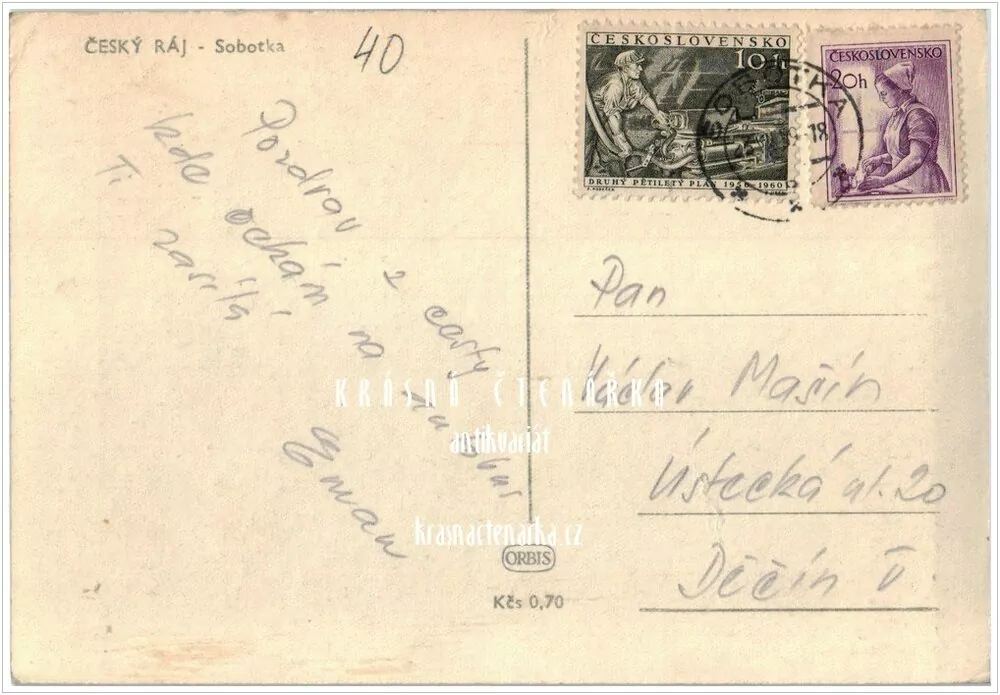 ČESKÝ RÁJ - Sobotka
40
ČESKOSLOVENSKO
10 h
DRUHÝ PĚTILETÝ PLÁN 1956-1960
ČESKOSLOVENSKO
20h
SOBOTKA
Pozdrav z cesty
kde čekám na autobus
Ti zasílá
Eman
Pan
Václav Mašín
Ústecká ul. 20
Děčín V.
KRÁSNÁ ČTENÁŘKA
antikvariát
krasnactenarka.cz
ORBIS
Kčs 0,70